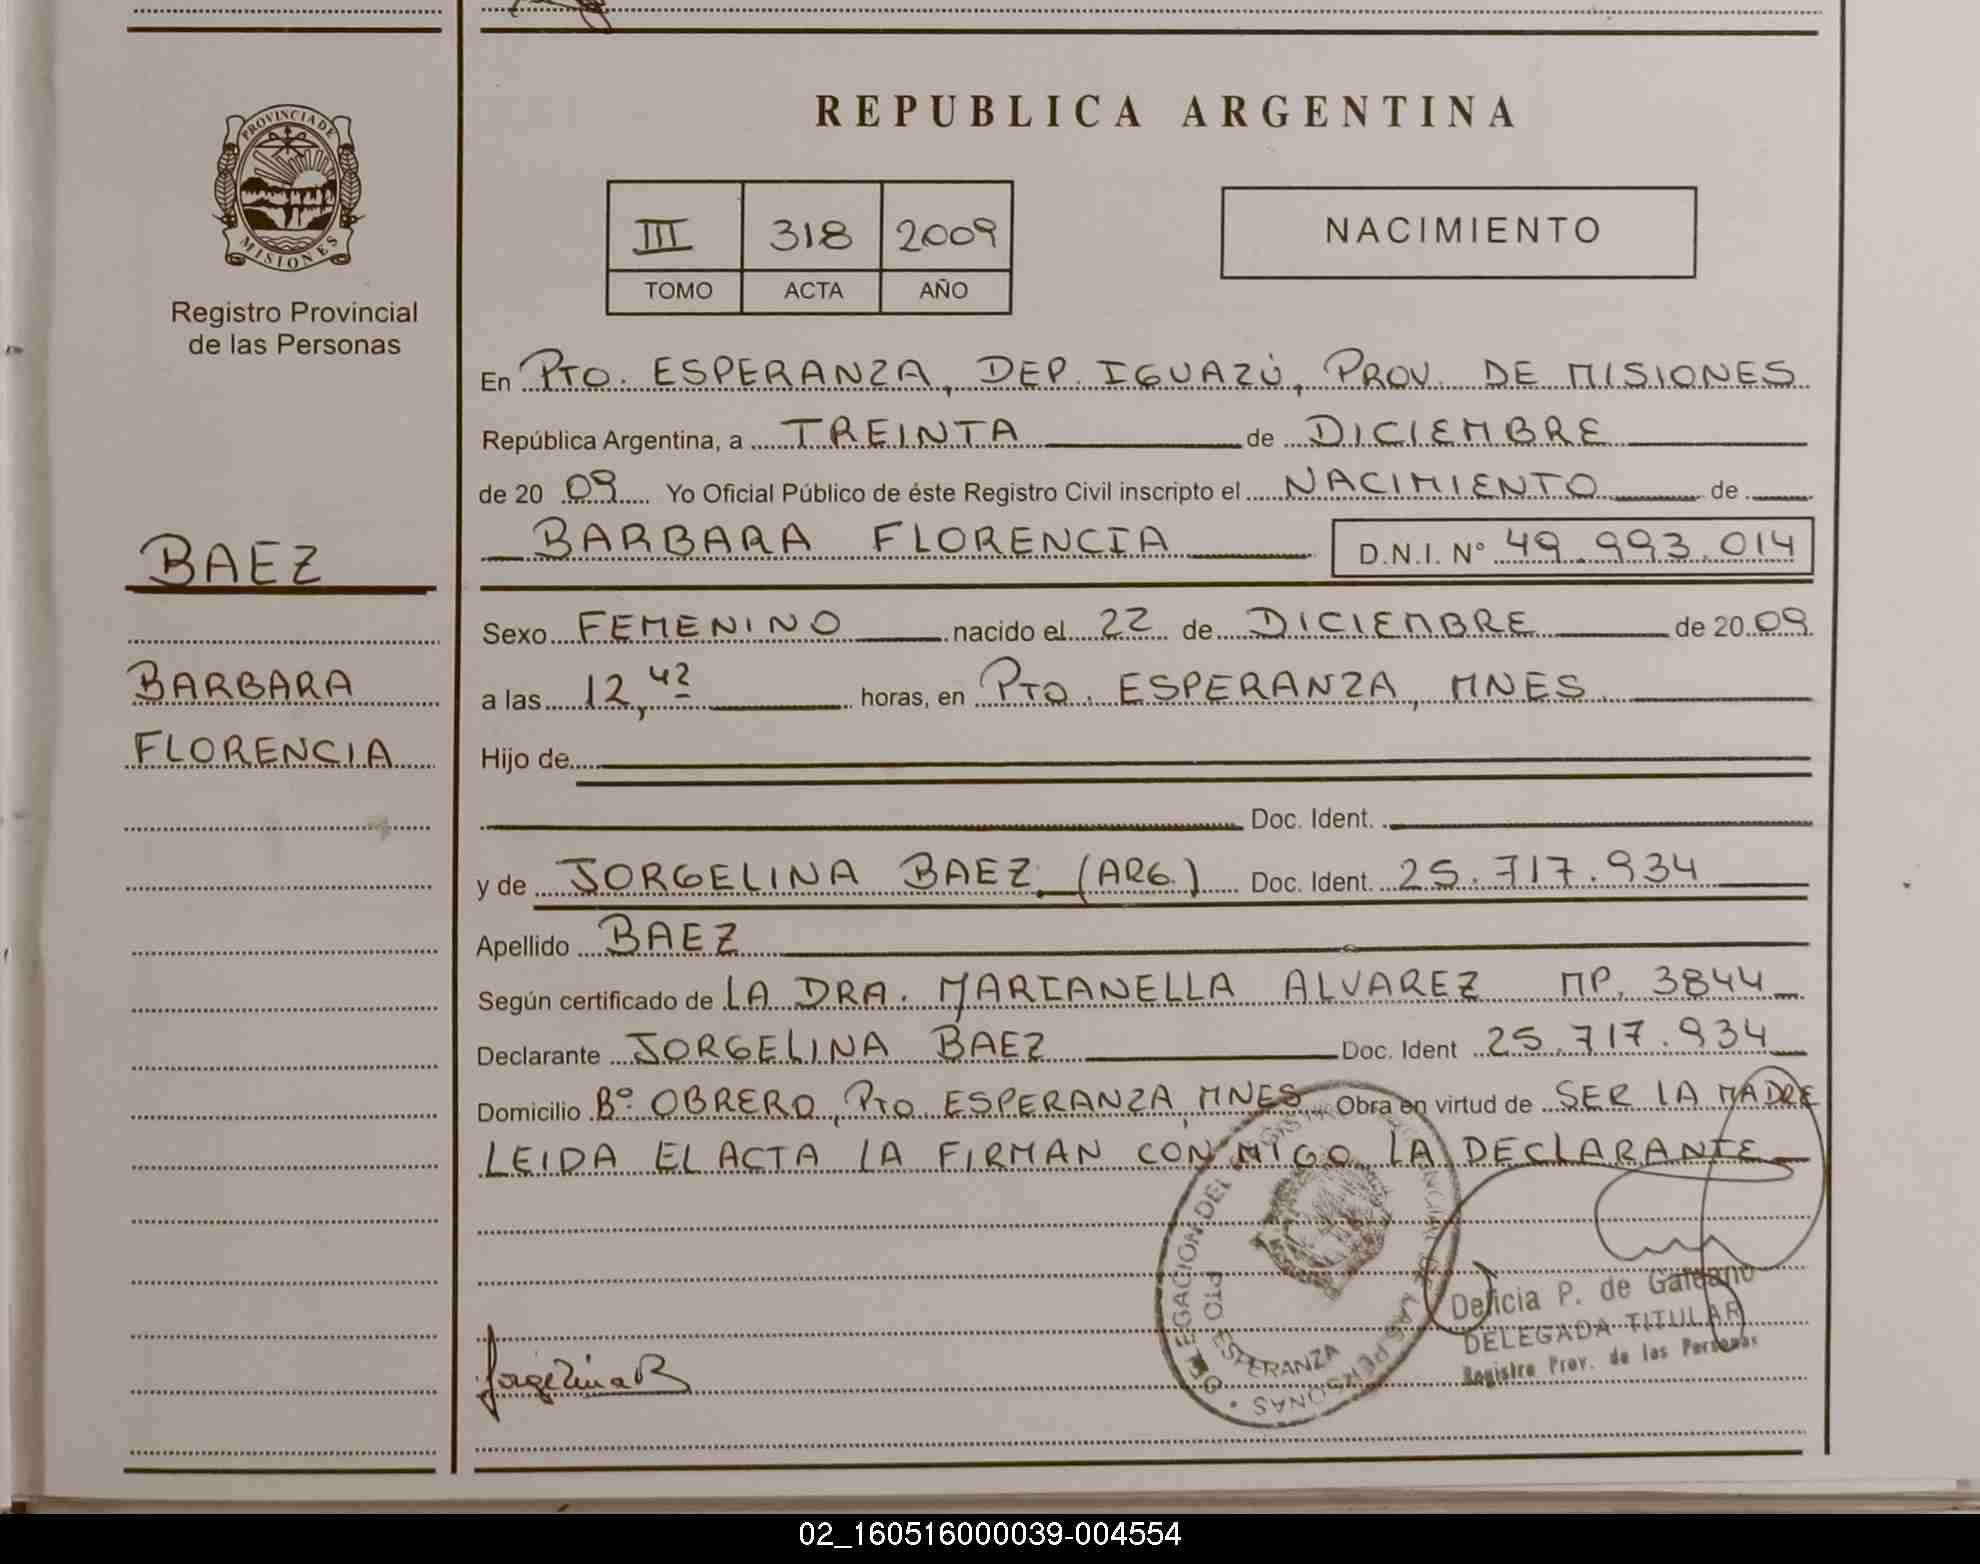 REPUBLICA ARGENTINA
PROVINCIA DE
MISIONES
Registro Provincial
de las Personas
III 318 2009
TOMO ACTA AÑO
NACIMIENTO
En PTO. ESPERANZA, DEP. IGUAZÚ, PROV. DE MISIONES
República Argentina, a TREINTA de DICIEMBRE
de 20 09 Yo Oficial Público de éste Registro Civil inscripto el NACIMIENTO de
BARBARA FLORENCIA D.N.I. Nº 49.993.014
BAEZ
BARBARA
FLORENCIA
Sexo FEMENINO nacido el 22 de DICIEMBRE de 20 09
a las 12,42 horas, en PTO. ESPERANZA, MNES
Hijo de
Doc. Ident.
y de JORGELINA BAEZ (ARG.) Doc. Ident. 25.717.934
Apellido BAEZ
Según certificado de LA DRA. MARIANELLA ALVAREZ MP. 3844
Declarante JORGELINA BAEZ Doc. Ident 25.717.934
Domicilio Bº OBRERO, PTO ESPERANZA, MNES Obra en virtud de SER LA MADRE
LEIDA EL ACTA LA FIRMAN CONMIGO LA DECLARANTE
DELEGACION DEL LAS PERSONAS
PTO ESPERANZA
Delicia P. de Galeano
DELEGADA TITULAR
Registro Prov. de las Personas
Jorgelina B
02_160516000039-004554